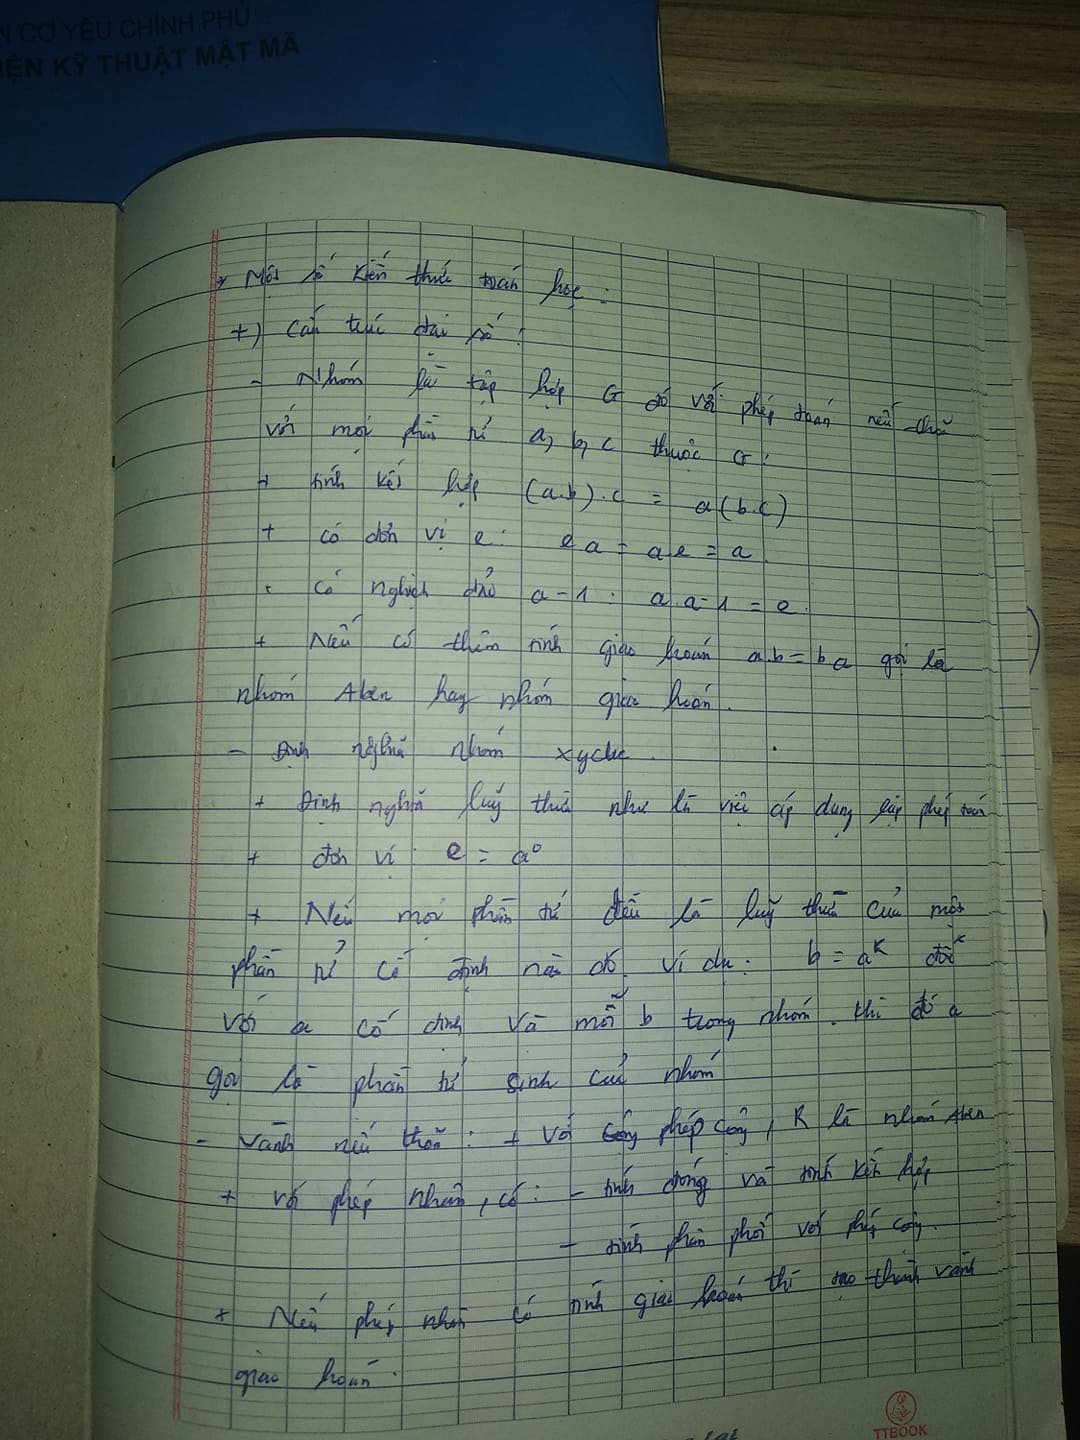 N CƠ YẾU CHÍNH PHỦ
IỆN KỸ THUẬT MẬT MÃ
→ Một số kiến thức toán học :
+) Cấu trúc đại số :
- Nhóm là tập hợp G đó với phép toán nếu thoã
với mọi phần tử a, b, c thuộc G :
+ tính kết hợp (a.b).c = a(b.c)
+ có đơn vị e : e a = a e = a.
+ Có nghịch đảo a-1 : a.a-1 = e.
+ Nếu có thêm tính giao hoán a.b = b a gọi là
nhóm Aben hay nhóm giao hoán.
- Định nghĩa nhóm xyclic.
+ Định nghĩa luỹ thừa như là việc áp dụng lặp phép toán
+ đơn vị : e = a⁰
+ Nếu mọi phần tử đều là luỹ thừa của một
phần tử cố định nào đó. ví dụ : b = aᴷ đối
với a cố định và mỗi b trong nhóm. thì đó a
gọi là phần tử sinh của nhóm
- Vành nếu thoã : + Với phép cộng, R là nhóm Aben
+ với phép nhân, có : - tính đóng và tính kết hợp
- tính phân phối với phép cộng.
+ Nếu phép nhân có tính giao hoán thì tạo thành vành
giao hoán.
TTBOOK